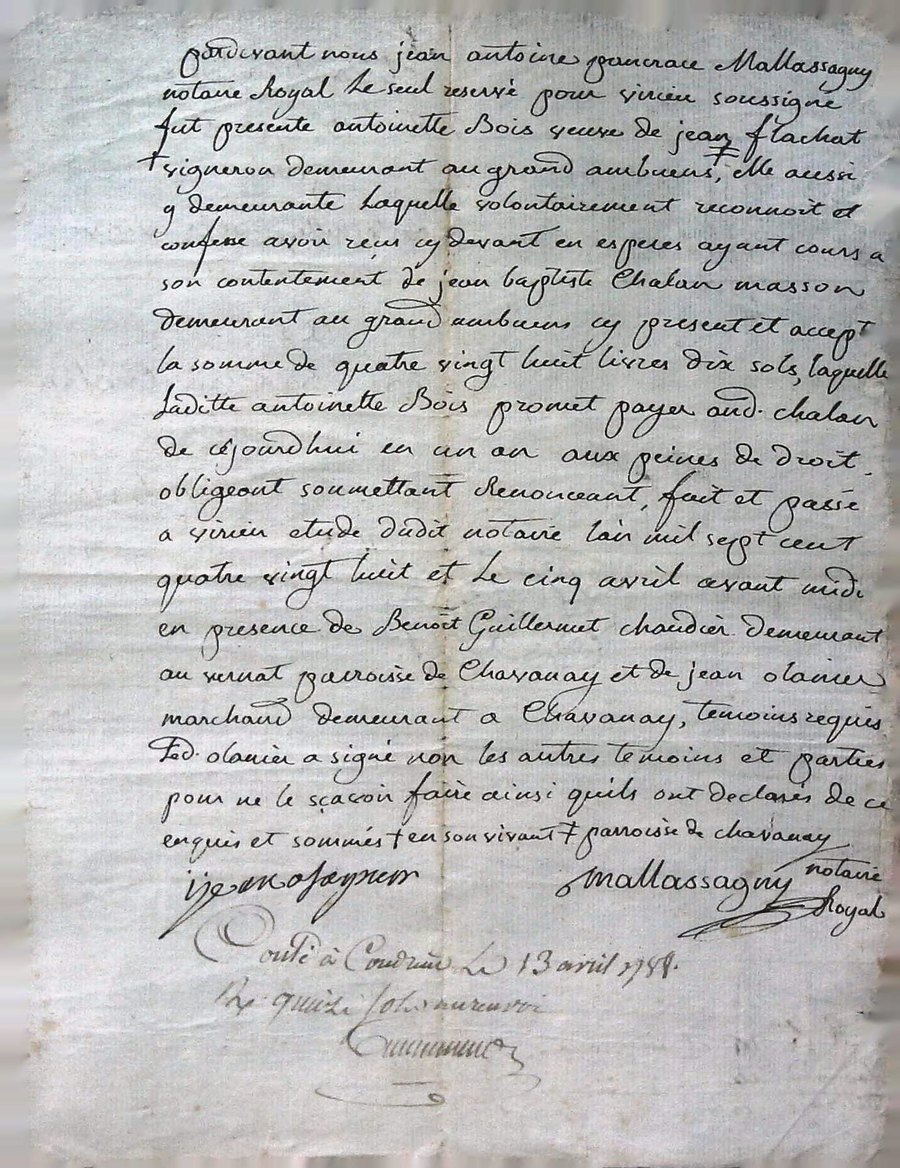 pardevant nous jean antoine pancrace Mallassagny
notaire Royal Le seul reservé pour virieu soussigné
fut presente antoinette Bois veuve de jean flachat
† vigneron demeurant au grand ambuens ‡, elle aussi
y demeurante Laquelle volontairement reconnoit et
confesse avoir reçus cy devant en especes ayant cours a
son contentement de jean baptiste Chalan masson
demeurant au grand ambuens cy present et accept
la somme de quatre vingt huit livres dix sols, laquelle
Laditte antoinette Bois promet payer aud. chalan
de cejourdhui en un an aux peines de droit.
obligeant soumettant Renonceant, fait et passé
a virieu etude dudit notaire l'an mil sept cent
quatre vingt huit et Le cinq avril avant midi
en presence de Benoit Guillermet chaudier demeurant
au vernat parroisse de Chavanay et de jean olanier
marchand demeurant a Chavanay, temoins requis
Led. olanier a signé non les autres temoins et parties
pour ne le sçavoir faire ainsi quils ont declarés de ce
enquis et sommés † en son vivant ‡ parroisse de chavanay
Mallassagny notaire
Royal
à Condrieu Le 13 avril 1788.
Rx quinze sols